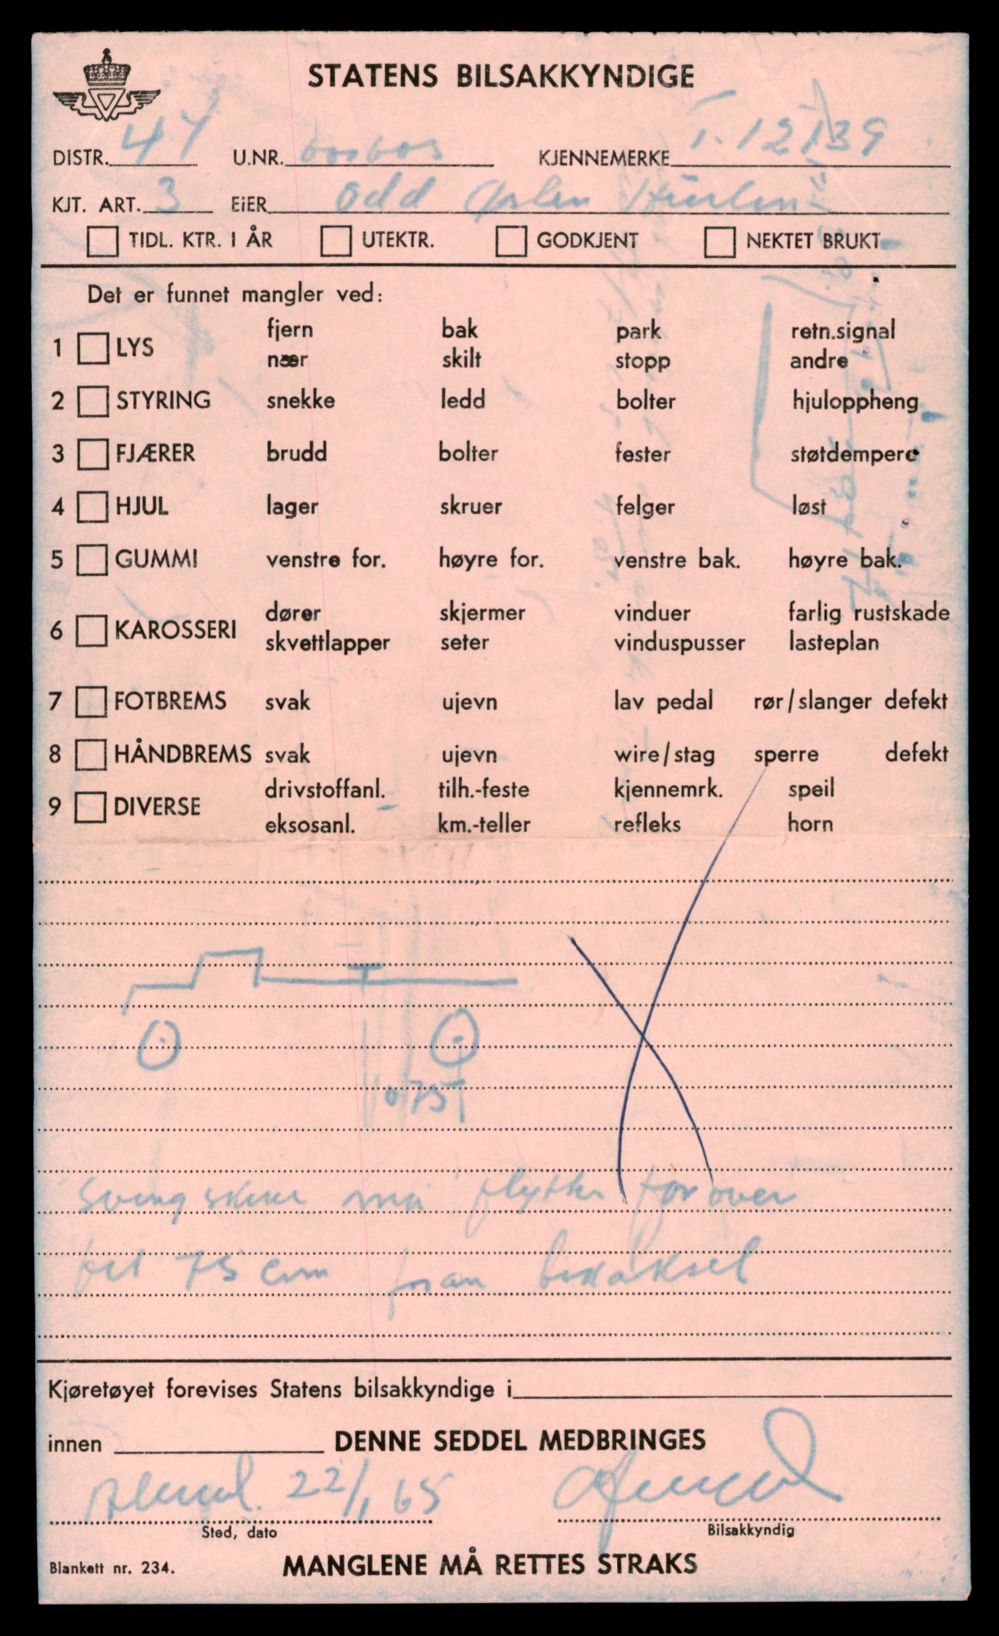 STATENS BILSAKKYNDIGE
DISTR. 44 U.NR. KJENNEMERKE T-12139
KJT. ART. 3 EIER Odd
TIDL. KTR. I ÅR UTEKTR. GODKJENT NEKTET BRUKT
Det er funnet mangler ved:
1 LYS fjern bak park retn.signal
nær skilt stopp andre
2 STYRING snekke ledd bolter hjuloppheng
3 FJÆRER brudd bolter fester støtdempere
4 HJUL lager skruer felger løst
5 GUMMI venstre for. høyre for. venstre bak. høyre bak.
6 KAROSSERI dører skjermer vinduer farlig rustskade
skvettlapper seter vinduspusser lasteplan
7 FOTBREMS svak ujevn lav pedal rør/slanger defekt
8 HÅNDBREMS svak ujevn wire/stag sperre defekt
9 DIVERSE drivstoffanl. tilh.-feste kjennemrk. speil
eksosanl. km.-teller refleks horn
075
Svingskive må flyttes forover
til 75 cm foran bakaksel
Kjøretøyet forevises Statens bilsakkyndige i
innen DENNE SEDDEL MEDBRINGES
22/1 65
Sted, dato Bilsakkyndig
Blankett nr. 234. MANGLENE MÅ RETTES STRAKS